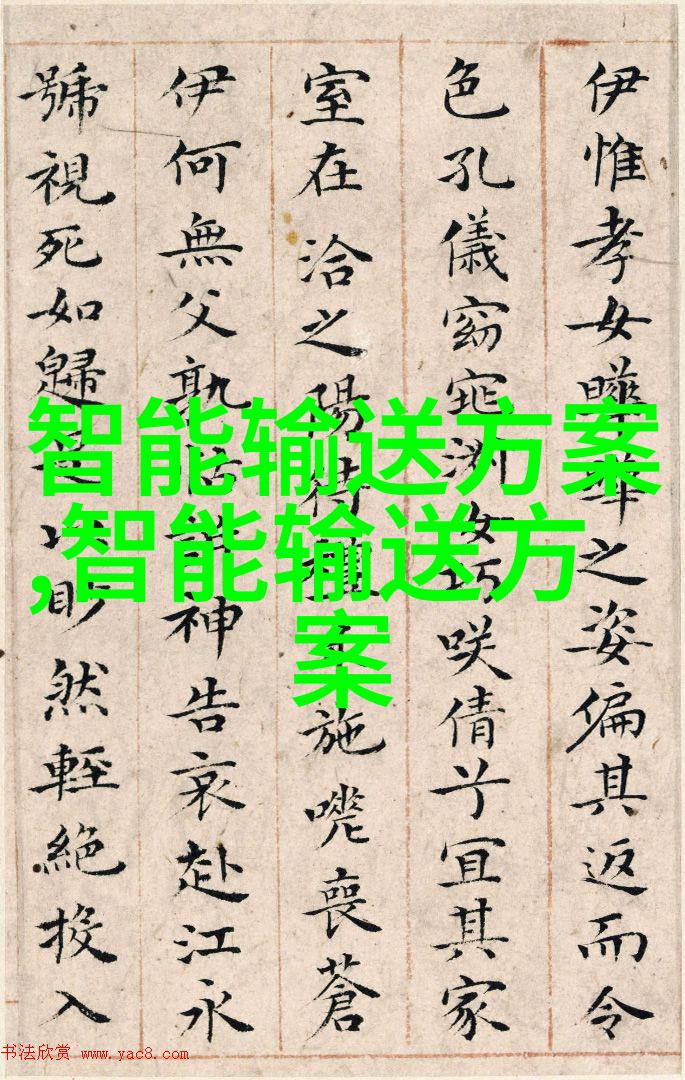 伊惟孝女曄之姿偏其返而令
色孔儀窈窕淑女巧咲倩兮宜其家
室在洽之陽待禮施嗟喪蒼
伊何無父孰怙訴神告哀赴江永
號視死如歸是以眇然輕絕投入
智能输送方案
,智能输送方
案
书法欣赏 www.yac8.com